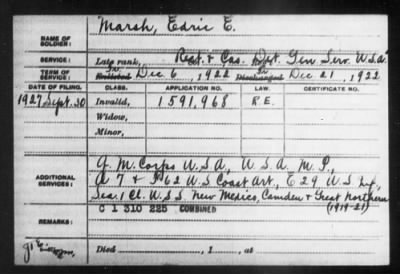 NAME OF SOLDIER: Marsh, Edric E.
SERVICE: Late rank, Rect. & Cas. Det. Gen Serv. U.S.A.
TERM OF SERVICE: Enlisted Dec 6, 1922 Discharged Dec 21, 1922
DATE OF FILING. CLASS. APPLICATION NO. LAW. CERTIFICATE NO.
1927 Sept. 30 Invalid, 1591,968 R.E.
Widow,
Minor,
ADDITIONAL SERVICES: Q M. Corps U.S.A., U.S.A. M.P.,
A 7 & 62 U.S Coast Art., E 29 U.S Inf.,
Sea. 1 Cl. U.S.S. New Mexico, Camden & Great Northern
(1919-21)
C 1 310 225 COMBINED
REMARKS:
Died , 1 , at